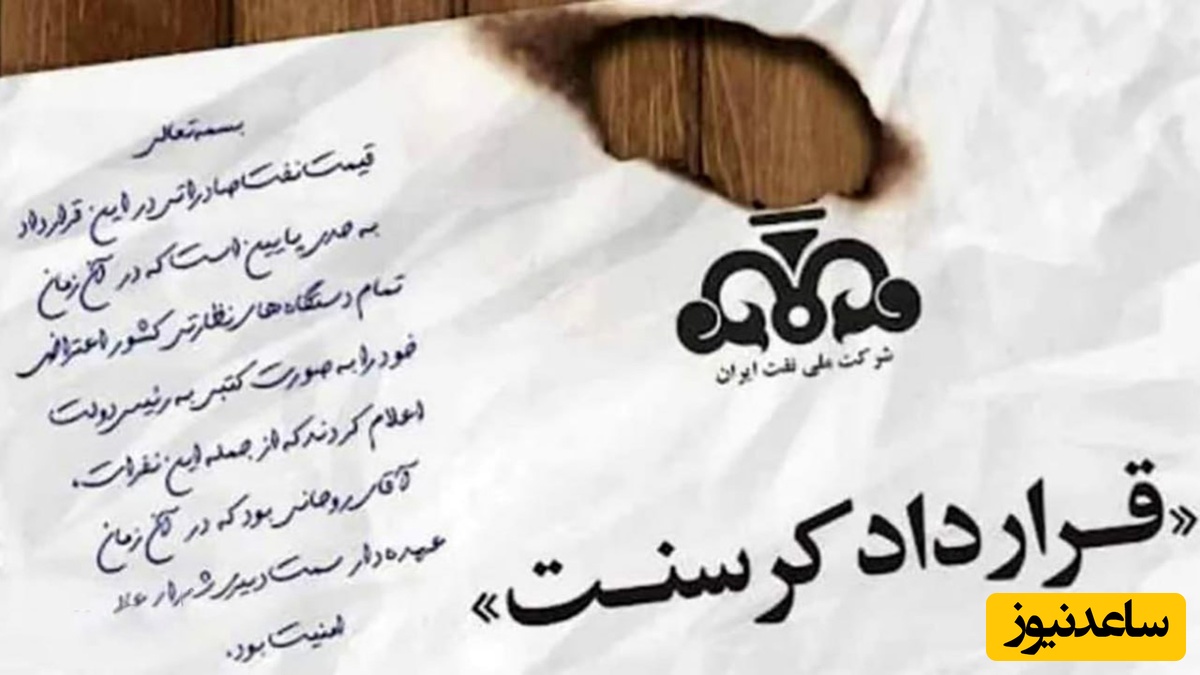 بسمه‌تعالی
قیمت نفت صادراتی در این قرارداد
به حدی پایین است که در آن زمان
تمام دستگاه‌های نظارتی کشور اعتراض
خود را به صورت کتبی به رئیس دولت
اعلام کردند که از جمله این نفرات،
آقای روحانی بود که در آن زمان
عهده‌دار سمت دبیری شورای عالی
امنیت بود.
شرکت ملی نفت ایران
«قرارداد کرسنت»
ساعدنیوز